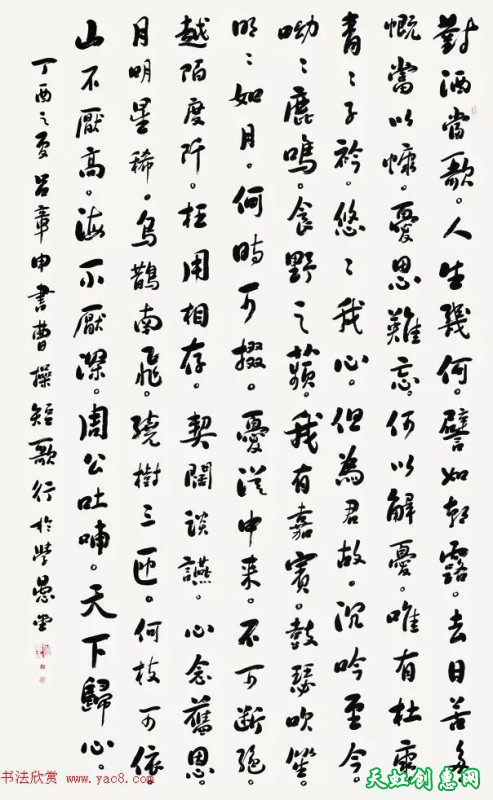 對酒當歌。人生幾何。譬如朝露。去日苦多。
慨當以慷。憂思難忘。何以解憂。唯有杜康。
青〻子衿。悠〻我心。但為君故。沉吟至今。
呦〻鹿鳴。食野之蘋。我有嘉賓。鼓瑟吹笙。
明〻如月。何時可掇。憂從中来。不可斷絕。
越陌度阡。枉用相存。契闊談讌。心念舊恩。
月明星稀。烏鵲南飛。繞樹三匝。何枝可依。
山不厭高。海不厭深。周公吐哺。天下歸心。
丁酉之夏呂章申書曹操短歌行於學愚堂
书法欣赏
www.yac8.com
天虹创惠网